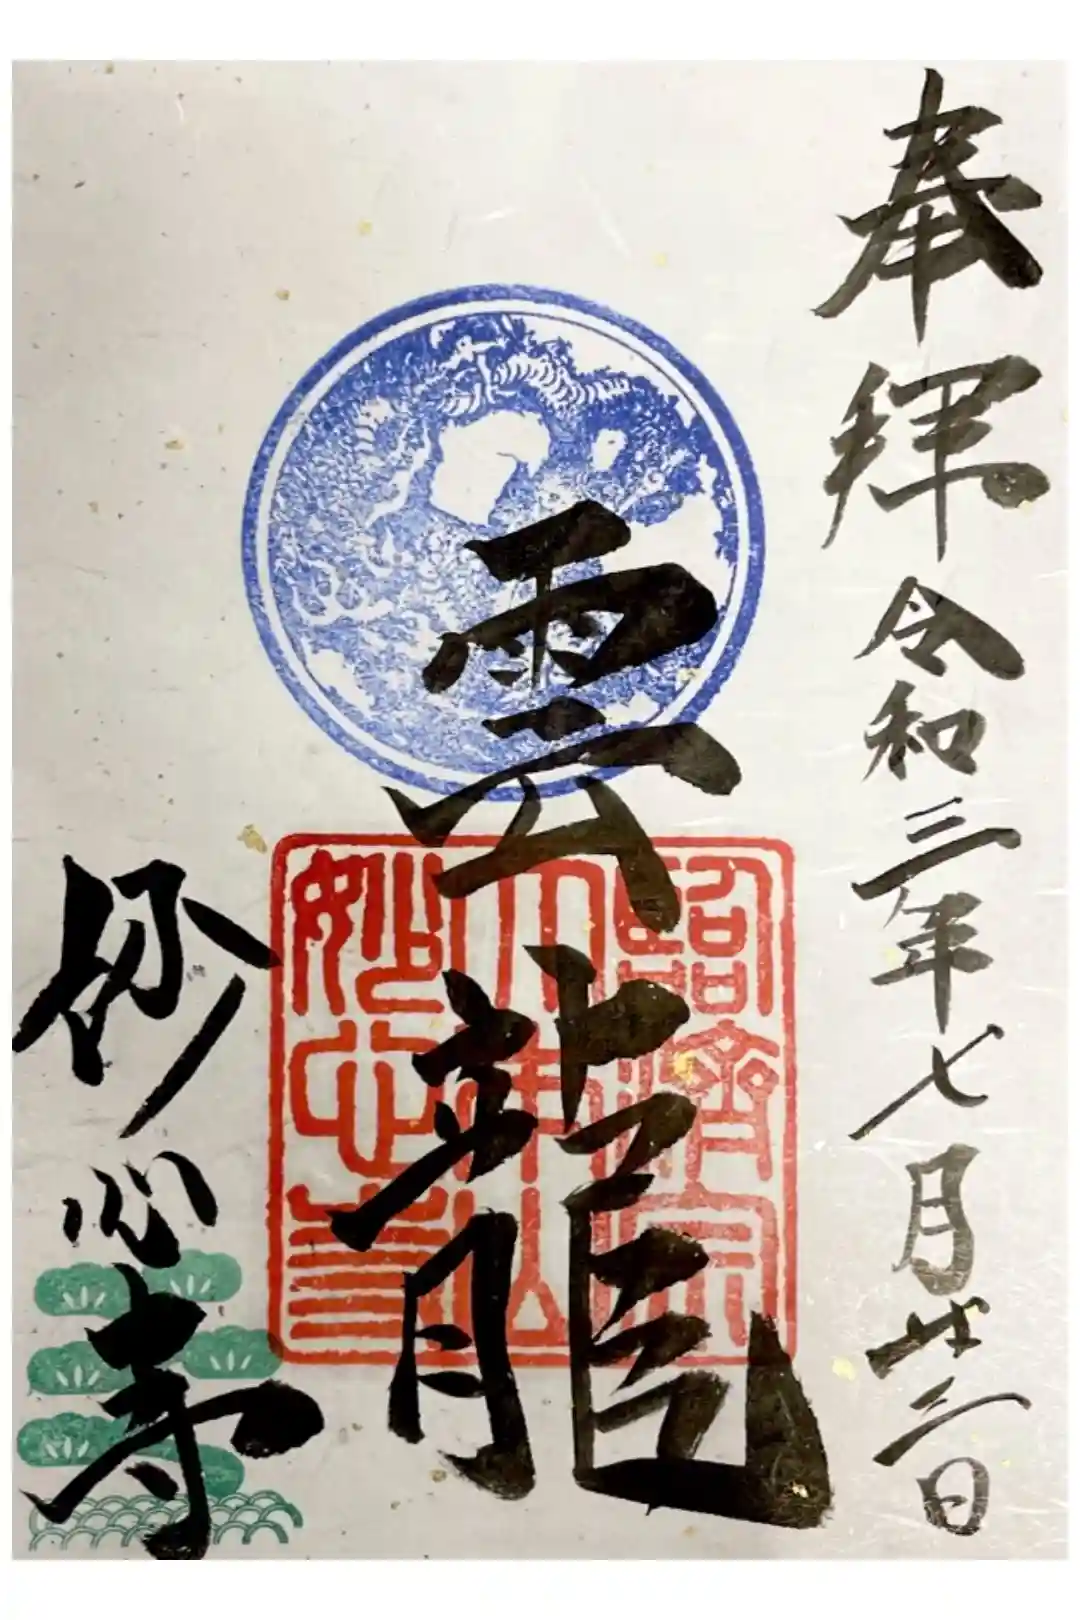 奉拝 令和三年七月廿三日
雲龍
臨濟宗
大本山
妙心寺
妙心寺